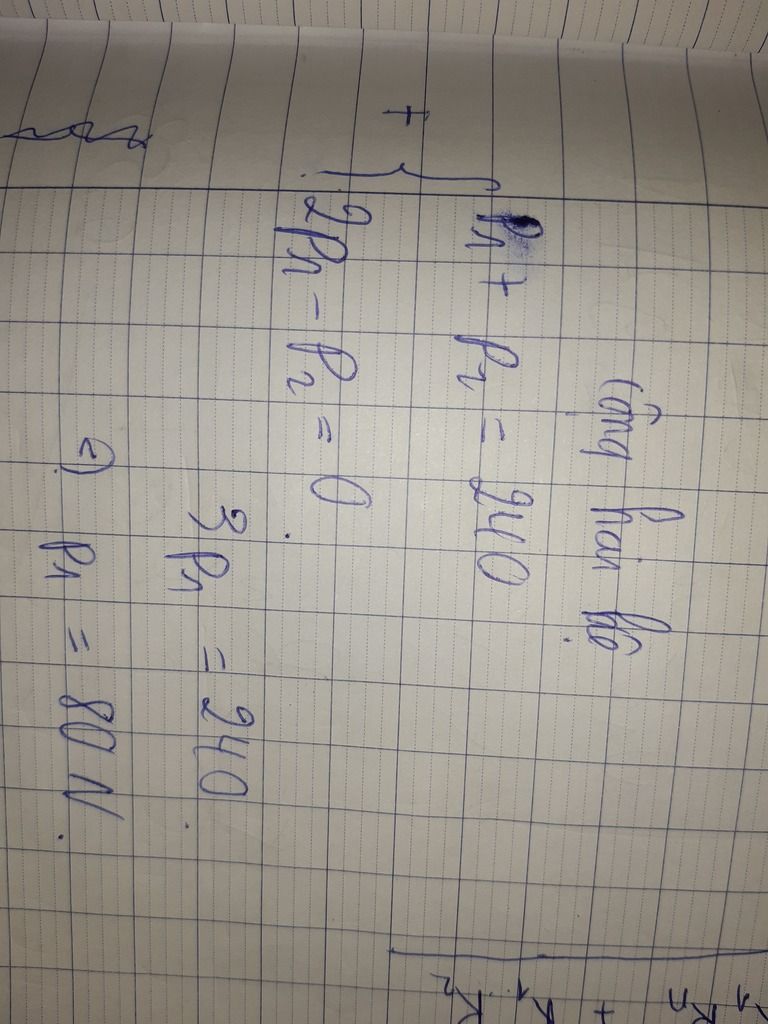 Cộng hai hệ
P1 + P2 = 240
+ {
2P1 - P2 = 0
3P1 = 240
=) P1 = 80 N.